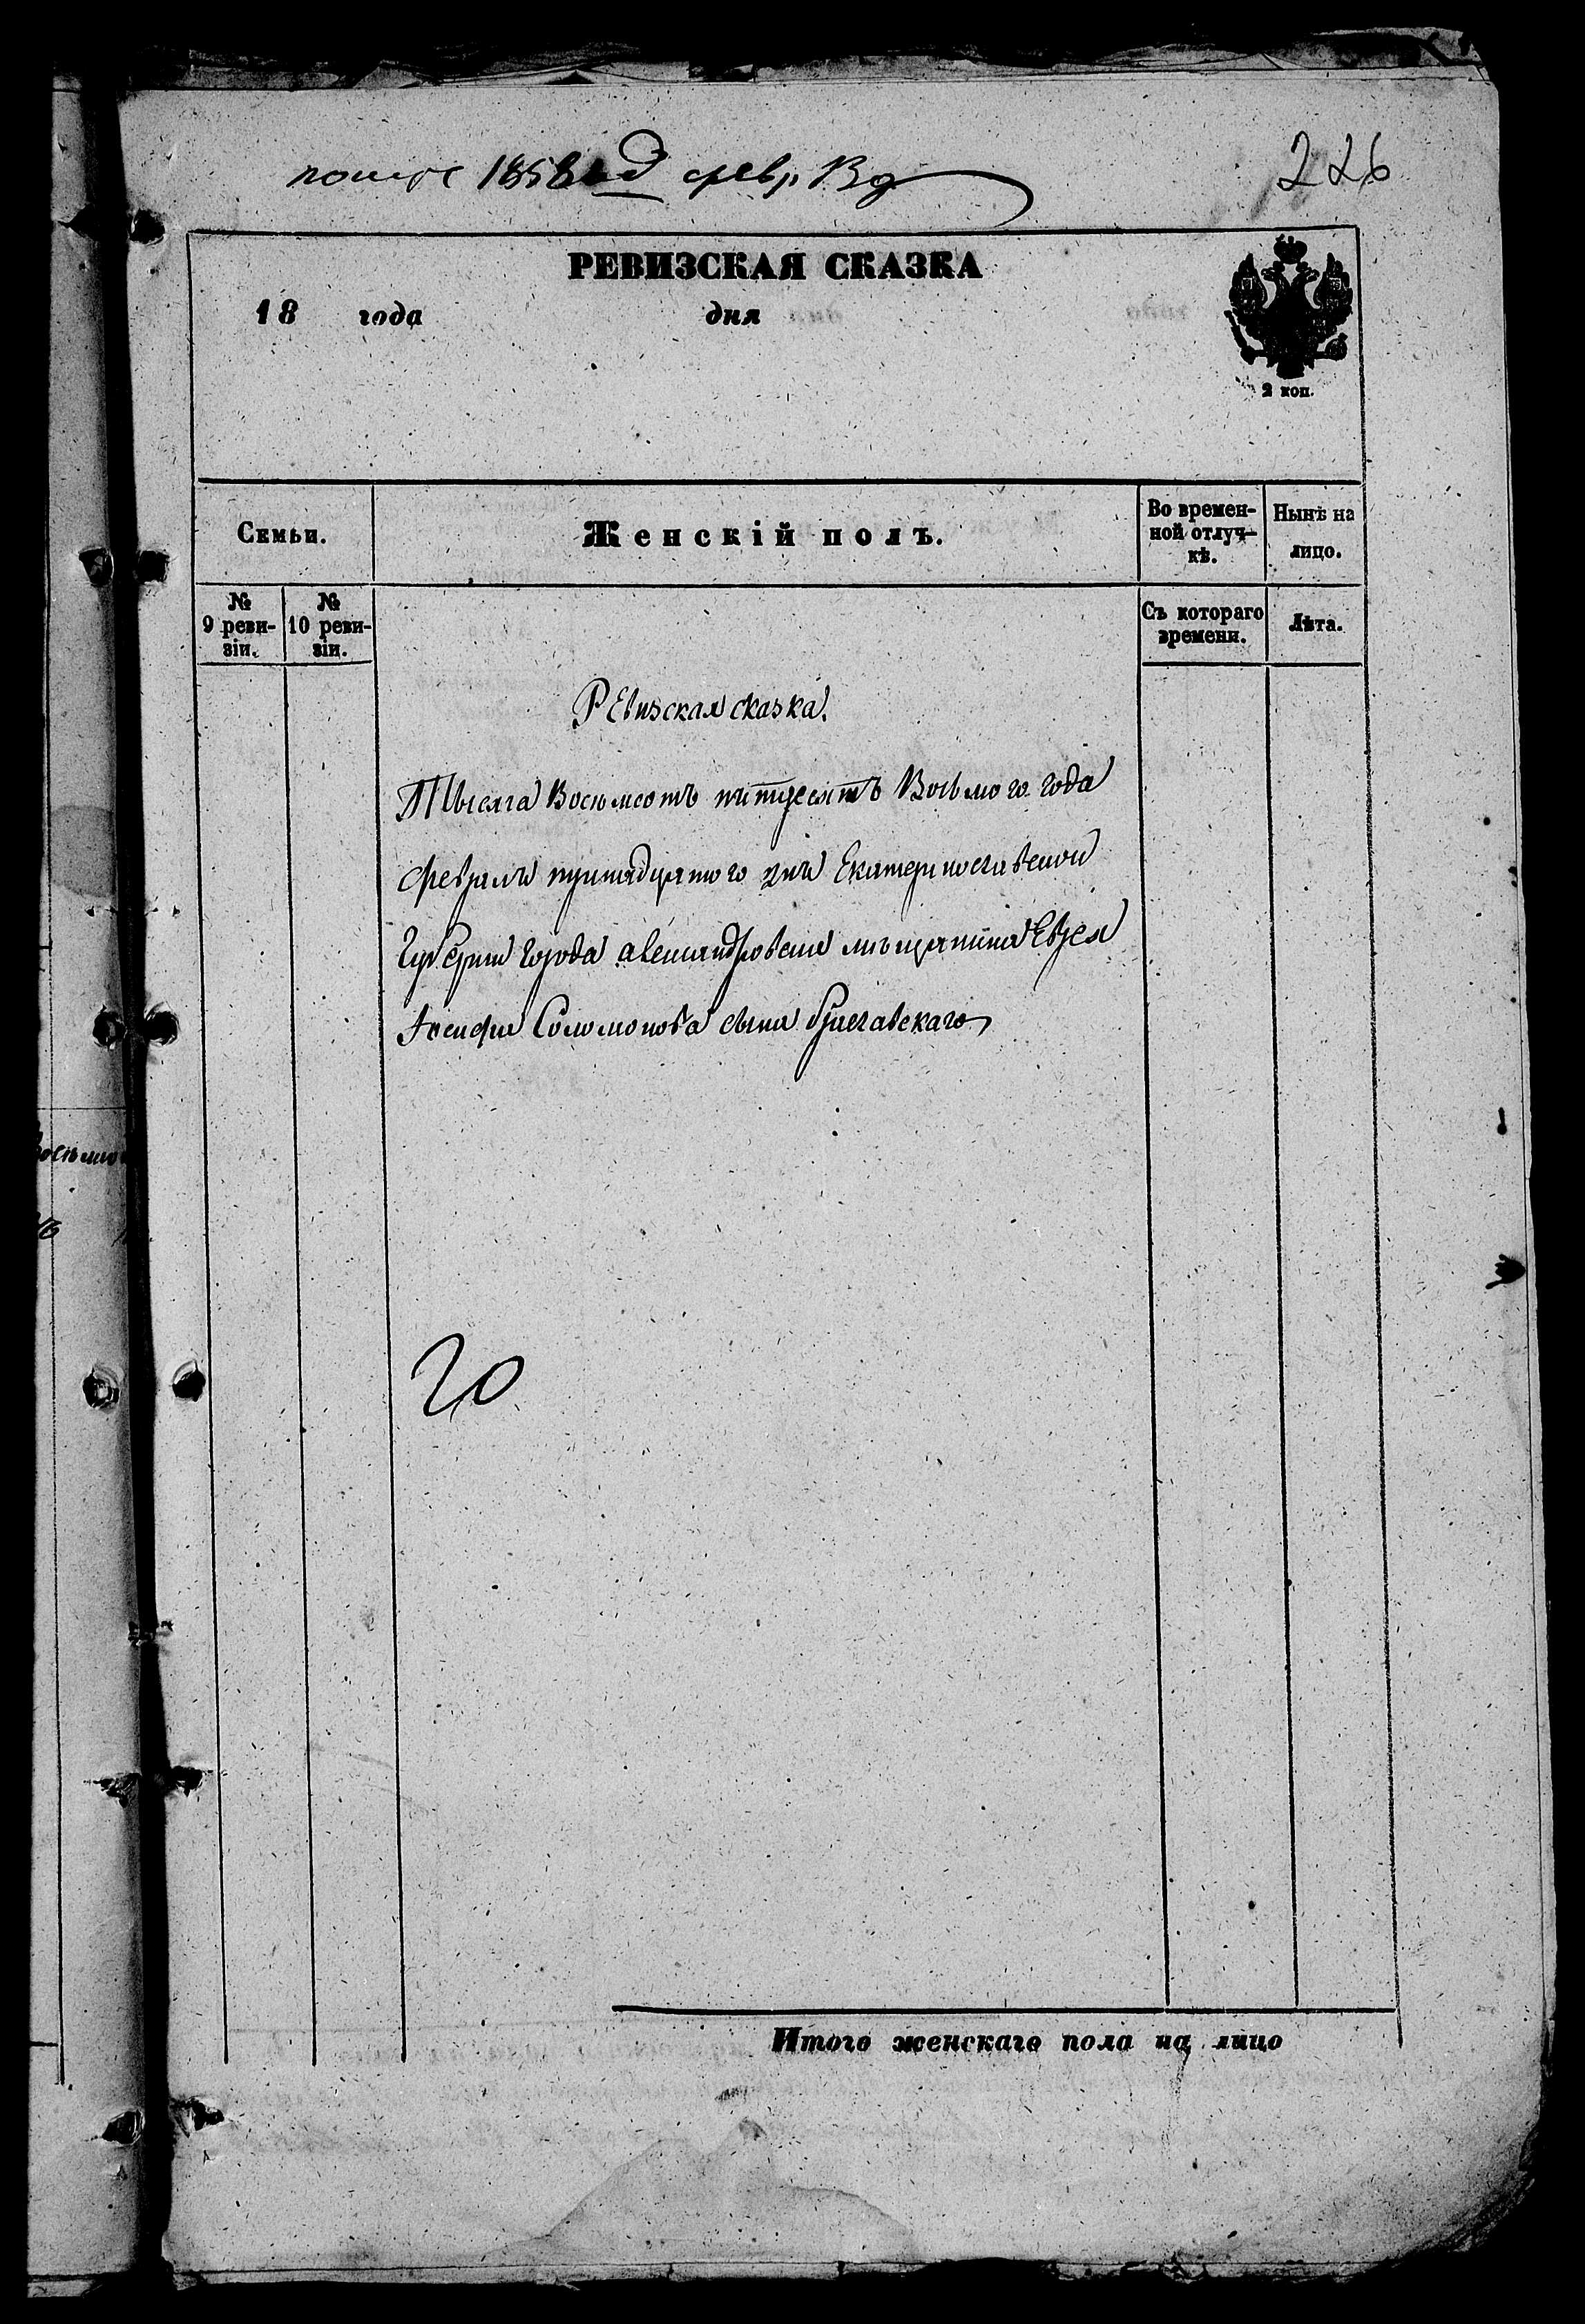 1858 февр. 13 д
226
РЕВИЗСКАЯ СКАЗКА
18 года дня
2 коп.
Семьи.
Женскій полъ.
Во времен-
ной отлуч-
кѣ.
Нынѣ на
лицо.
№
9 реви-
зіи.
№
10 реви-
зіи.
Съ котораго
времени.
Лѣта.
Ревизская сказка.
Тысяча Восемсотъ пятдесятъ Восьмого года
февраля тринадцятого дня Екатеринославской
Губерніи города александровска мѣщанина Еврея
Іосифа Соломонова сына Браславскаго
20
Итого женскаго пола на лицо